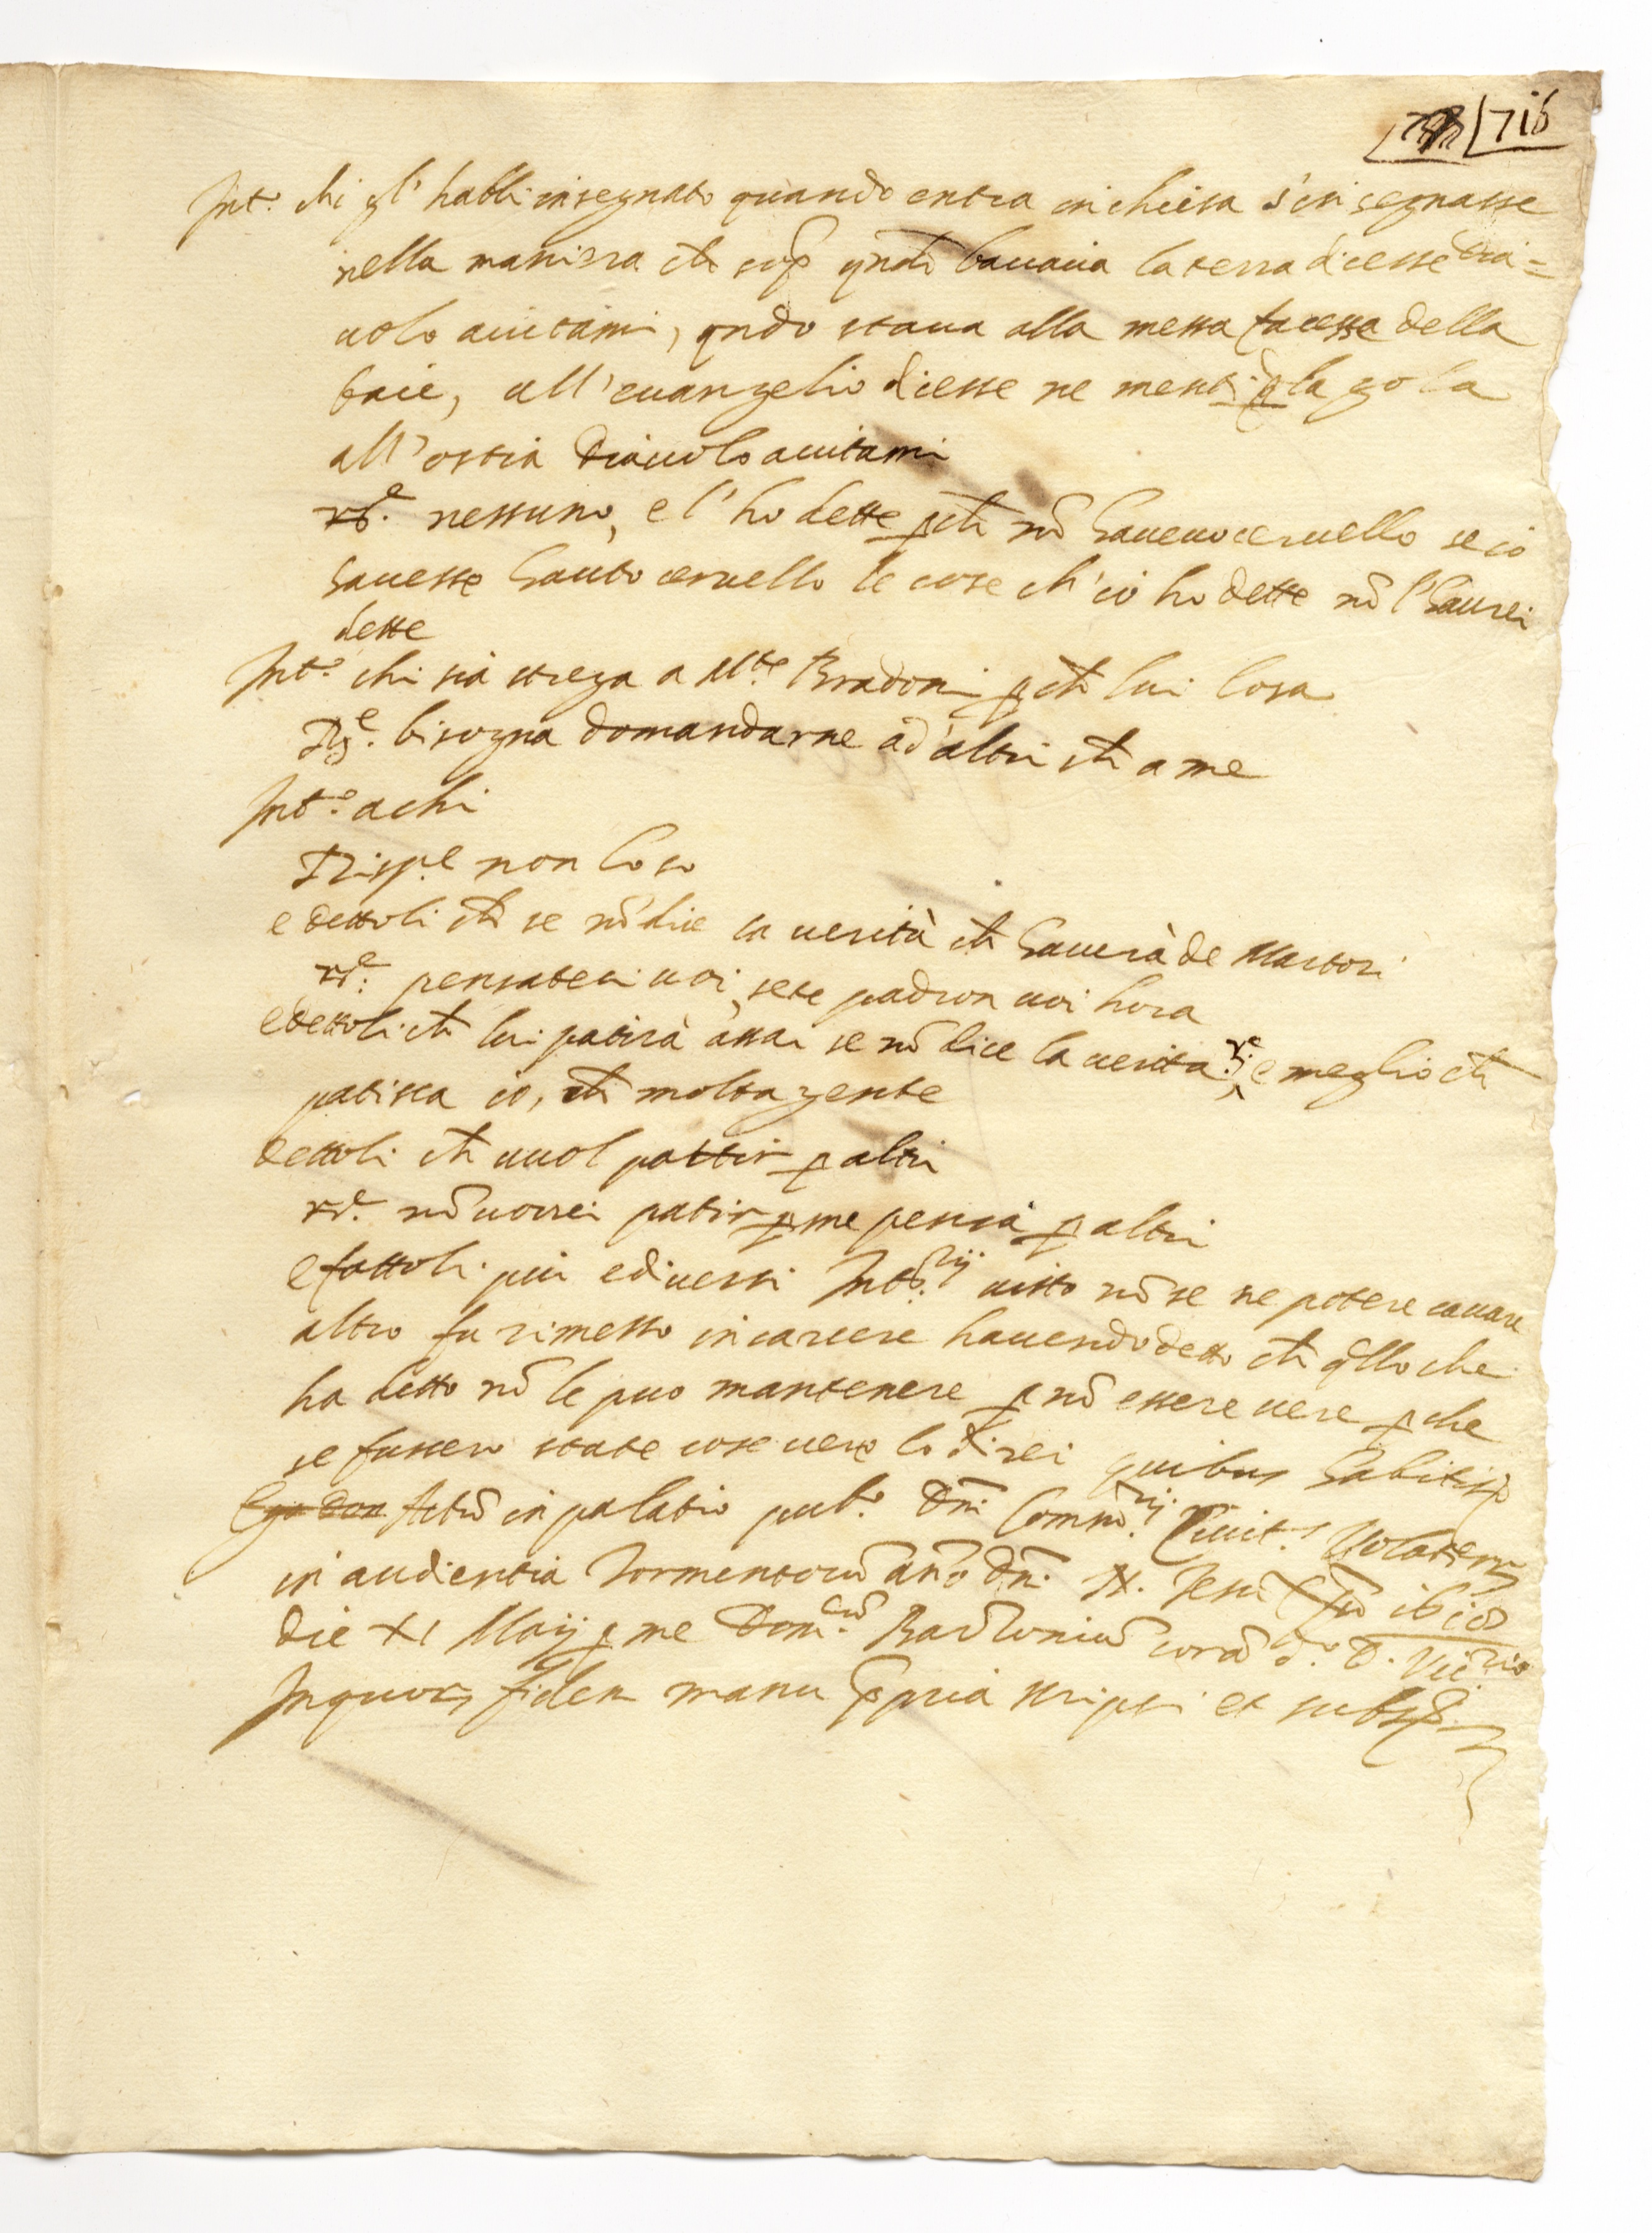 716
Int.o chi gl'habbi insegnato quando entra in chiesa s'insegnasse
nella maniera ch sop.a qndo baciava la terra dicesse dia=
uolo aiutami, qndo staua alla messa facesse della
baie, all'euangelio dicesse ne menti p la gola
all'ostia diauolo aiutami
r.e nessuno, e l'ho dette p ch nō haueuo ceruello se io
hauesse hauto ceruello le cose ch'io ho dette nō l'haurei
dette
Int.o chi sia strega a M.te Bradoni p ch lui lo sa
R.e bisogna domandarne ad altri ch a me
Int.o a chi
Risp.e non lo so
e dettoli ch se nō dice la uerità ch hauerà de Martori
r.e pensateci uoi, sete padron uoi hora
e dettoli ch lui patirà assai se nō dice la uerita r.e e meglio ch
patisca io, ch molta gente
dettoli ch uuol patir p altri
r.e nō uorrei patir p me pensa p altri
e fattoli più e diuersi Intō.rij uisto nō se ne potere cauare
altro fu rimesso in carcere hauendo detto ch qllo che
ha detto nō le puo mantenere p nō essere uere p che
se fussero state cose uere lo direi quibus habitis
Actū in palatio pub.o Dni Comm.rij Ciuit.s Volaterr
in audientia Tormentorū anō Dni N. Jesu
die XI Maij p me Dom.cū corā d.o D. Vic.rio
In quor fidem manu ppria scripsi et subsp.